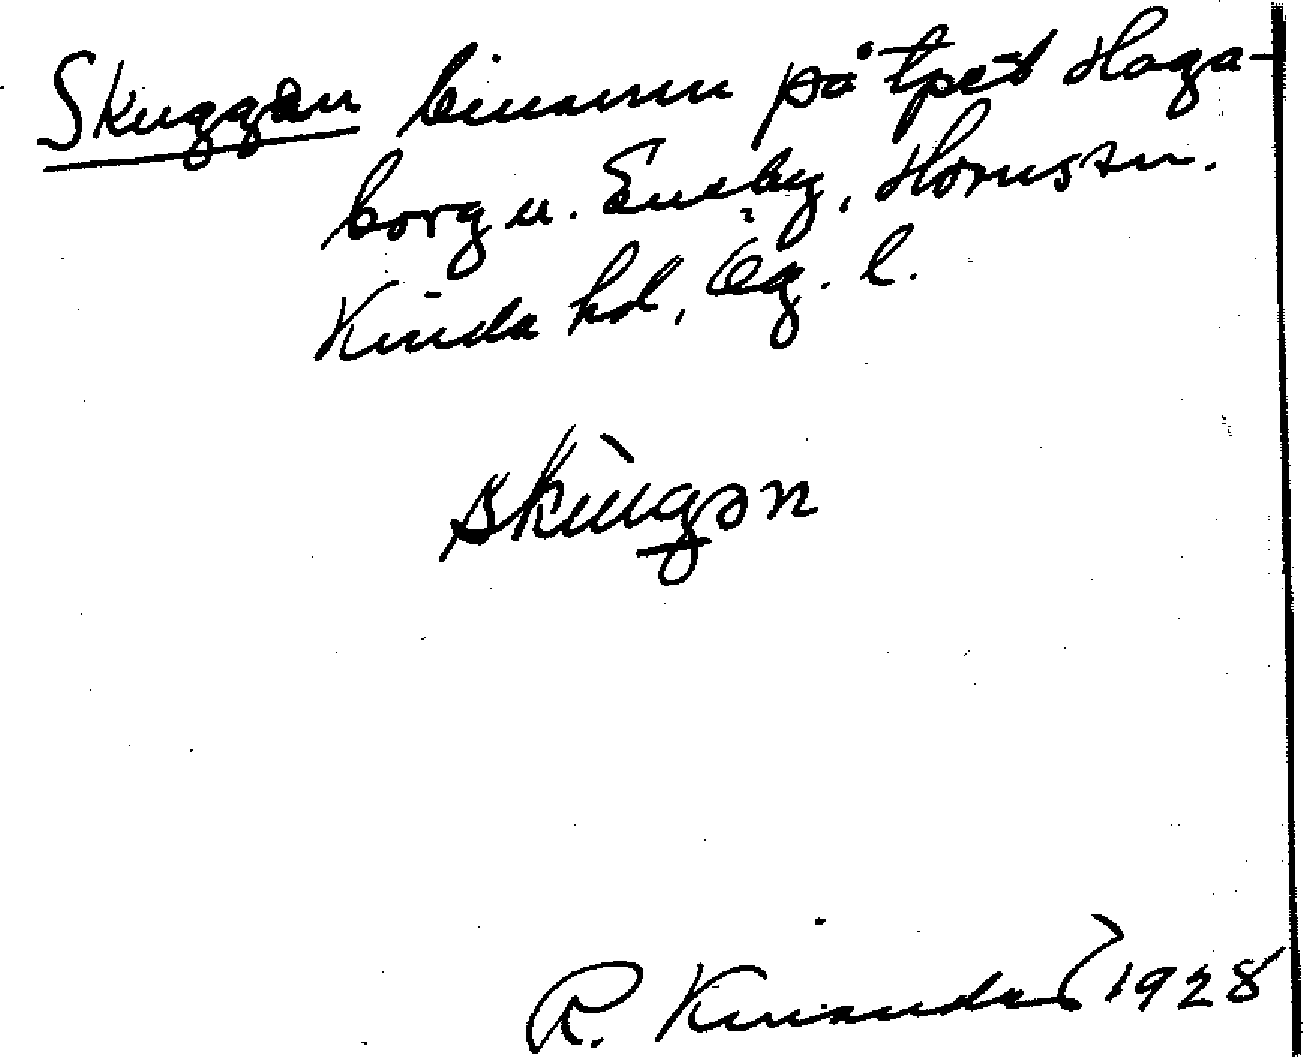 Skuggan binamn på tpet Haga-
borg u. Eneby, Horns sn.
Kinda hd, Ög. l.
skùgən
R. Kinander 1928